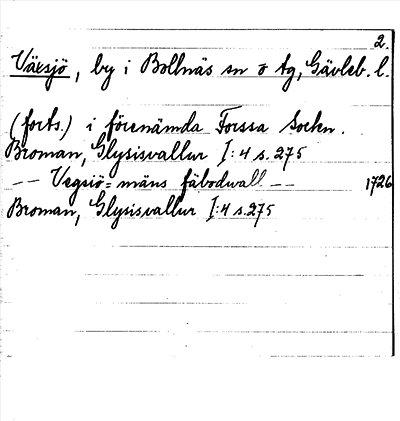 2.
Växsjö, by i Bollnäs sn o tg, Gävleb. l.
(forts.) i förenämda Forssa Sockn.
Broman, Glysisvallur I:4 s. 275
-- Vegsiö=mäns fäbodwall -- 1726
Broman, Glysisvallur I:4 s. 275